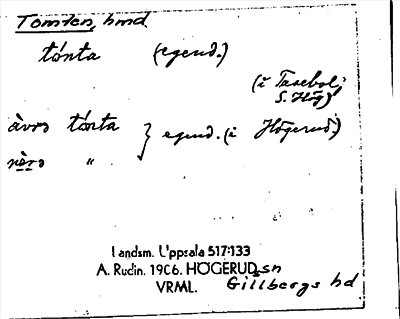 Tomten, hmd.
tónta (egend.)
(i Tasebol,
S. Hög)
àvrə tónta } egend. (i Högerud)
nèrə "
Landsm. Uppsala 517:133
A. Rudin. 1906. HÖGERUD sn
VRML. Gillbergs hd